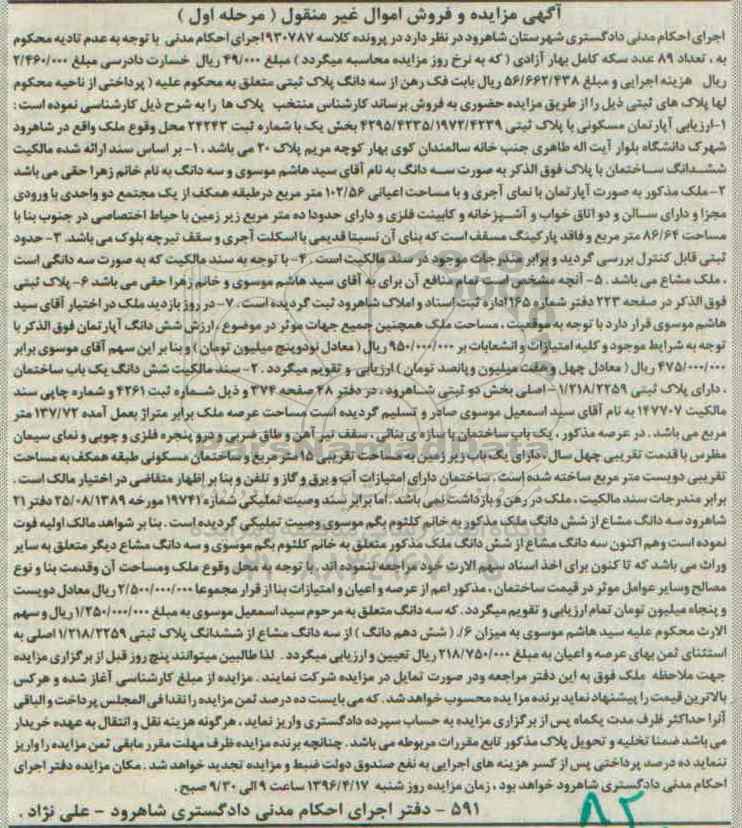 آگهی مزایده و فروش اموال غیر منقول ( مرحله اول )
اجرای احکام مدنی دادگستری شهرستان شاهرود در نظر دارد در پرونده کلاسه ۹۳۰۷۸۷ اجرای احکام مدنی با توجه به عدم تادیه محکوم
به ، تعداد ۸۹ عدد سکه کامل بهار آزادی ( که به نرخ روز مزایده محاسبه میگردد ) مبلغ ۴۹/۰۰۰ ریال خسارت دادرسی مبلغ ۲/۴۶۰/۰۰۰
ریال هزینه اجرایی و مبلغ ۵۶/۶۶۲/۴۳۸ ریال بابت فک رهن از سه دانگ پلاک ثبتی متعلق به محکوم علیه ( پرداختی از ناحیه محکوم
لها پلاک های ثبتی ذیل را از طریق مزایده حضوری به فروش برساند کارشناس منتخب پلاک ها را به شرح ذیل کارشناسی نموده است :
۱-ارزیابی آپارتمان مسکونی با پلاک ثبتی ۴۲۹۵/۴۲۳۵/۱۹۷۲/۴۲۳۹ بخش یک با شماره ثبت ۲۴۲۴۳ محل وقوع ملک واقع در شاهرود
شهرک دانشگاه بلوار آیت اله طاهری جنب خانه سالمندان کوی بهار کوچه مریم پلاک ۲۰ می باشد ، ۱- بر اساس سند ارائه شده مالکیت
ششدانگ ساختمان با پلاک فوق الذکر به صورت سه دانگ به نام آقای سید هاشم موسوی و سه دانگ به نام خانم زهرا حقی می باشد
۲-ملک مذکور به صورت آپارتمان با نمای آجری و با مساحت اعیانی ۱۰۲/۵۶ متر مربع درطبقه همکف از یک مجتمع دو واحدی با ورودی
مجزا و دارای سالن و دو اتاق خواب و آشپزخانه و کابینت فلزی و دارای حدودا ده متر مربع زیر زمین با حیاط اختصاصی در جنوب بنا با
مساحت ۸۶/۶۴ متر مربع و فاقد پارکینگ مسقف است که بنای آن نسبتا قدیمی با اسکلت آجری و سقف تیرچه بلوک می باشد. ۳-حدود
ثبتی قابل کنترل بررسی گردید و برابر مندرجات موجود در سند مالکیت است . ۴- با توجه به سند مالکیت که به صورت سه دانگی است
، ملک مشاع می باشد . ۵- آنچه مشخص است تمام منافع آن برای به آقای سید هاشم موسوی و خانم زهرا حقی می باشد ۶- پلاک ثبتی
فوق الذکر در صفحه ۲۲۳ دفتر شماره ۱۶۵ اداره ثبت اسناد و املاک شاهرود ثبت گردیده است . ۷- در روز بازدید ملک در اختیار آقای سید
هاشم موسوی قرار دارد با توجه به موقعیت ، مساحت ملک همچنین جمیع جهات موثر در موضوع ، ارزش شش دانگ آپارتمان فوق الذکر با
توجه به شرایط موجود و کلیه امتیازات و انشعابات بر ۹۵۰/۰۰۰/۰۰۰ ریال ( معادل نودوپنج میلیون تومان ) و بنا بر این سهم آقای موسوی برابر
۴۷۵/۰۰۰/۰۰۰ ریال ( معادل چهل و هفت میلیون و پانصد تومان ) ارزیابی و تقویم میگردد . ۲- سند مالکیت شش دانگ یک باب ساختمان
، دارای پلاک ثبتی ۱/۲۱۸/۲۲۵۹- اصلی بخش دو ثبتی شاهرود ، در دفتر ۴۸ صفحه ۳۷۴ و ذیل شماره ثبت ۴۲۶۱ و شماره چاپی سند
مالکیت ۱۴۷۷۰۷ به نام آقای سید اسمعیل موسوی صادر و تسلیم گردیده است مساحت عرصه ملک برابر متراژ بعمل آمده ۱۳۷/۷۲ متر
مربع می باشد . در عرصه مذکور ، یک باب ساختمان با سازه ی بنائی ، سقف تیر آهن و طاق ضربی و درو پنجره فلزی و چوبی و نمای سیمان
مطرس با قدمت تقریبی چهل سال ، دارای یک باب زیر زمین به مساحت تقریبی ۱۵ متر مربع و ساختمان مسکونی طبقه همکف به مساحت
تقریبی دویست متر مربع ساخته شده است . ساختمان دارای امتیازات آب و برق و گاز و تلفن و بنا بر اظهار متقاضی در اختیار مالک است .
برابر مندرجات سند مالکیت ، ملک در رهن و بازداشت نمی باشد . اما برابر سند وصیت تملیکی شماره ۱۹۷۴۱ مورخه ۲۵/۰۸/۱۳۸۹ دفتر ۲۱
شاهرود سه دانگ مشاع از شش دانگ ملک مذکور به خانم کلثوم بگم موسوی وصیت تملیکی گردیده است . بنا بر شواهد مالک اولیه فوت
نموده است وهم اکنون سه دانگ مشاع از شش دانگ ملک مذکور متعلق به خانم کلثوم بگم موسوی و سه دانگ مشاع دیگر متعلق به سایر
وراث می باشد که تا کنون برای اخذ اسناد سهم الارث خود مراجعه ننموده اند . با توجه به محل وقوع ملک ومساحت آن وقدمت بنا و نوع
مصالح وسایر عوامل موثر در قیمت ساختمان ، مذکور اعم از عرصه و اعیان و امتیازات بنا از قرار مجموعا ۲/۵۰۰/۰۰۰/۰۰۰ ریال معادل دویست
و پنجاه میلیون تومان تمام ارزیابی و تقویم میگردد . که سه دانگ متعلق به مرحوم سید اسمعیل موسوی به مبلغ ۱/۲۵۰/۰۰۰/۰۰۰ ریال و سهم
الارث محکوم علیه سید هاشم موسوی به میزان ۶/. ( شش دهم دانگ ) از سه دانگ مشاع از ششدانگ پلاک ثبتی ۱/۲۱۸/۲۲۵۹ اصلی به
استثنای ثمن بهای عرصه و اعیان به مبلغ ۲۱۸/۷۵۰/۰۰۰ ریال تعیین و ارزیابی میگردد . لذا طالبین میتوانند پنج روز قبل از برگزاری مزایده
جهت ملاحظه ملک فوق به این دفتر مراجعه ودر صورت تمایل در مزایده شرکت نمایند . مزایده از مبلغ کارشناسی آغاز شده و هرکس
بالاترین قیمت را پیشنهاد نماید برنده مزایده محسوب خواهد شد . که می بایست ده درصد ثمن مزایده را نقدا فی المجلس پرداخت و الباقی
آنرا حداکثر ظرف مدت یکماه پس از برگزاری مزایده به حساب سپرده دادگستری واریز نماید ، هرگونه هزینه نقل و انتقال به عهده خریدار
می باشد ضمنا تخلیه و تحویل پلاک مذکور تابع مقررات مربوطه می باشد . چنانچه برنده مزایده ظرف مهلت مقرر مابقی ثمن مزایده را واریز
ننماید ده درصد پرداختی پس از کسر هزینه های اجرایی به نفع صندوق دولت ضبط و مزایده تجدید خواهد شد . مکان مزایده دفتر اجرای
احکام مدنی دادگستری شاهرود خواهد بود ، زمان مزایده روز شنبه ۱۳۹۶/۴/۱۷ ساعت ۹ الی ۹/۳۰ صبح .
۵۹۱ - دفتر اجرای احکام مدنی دادگستری شاهرود - علی نژاد .